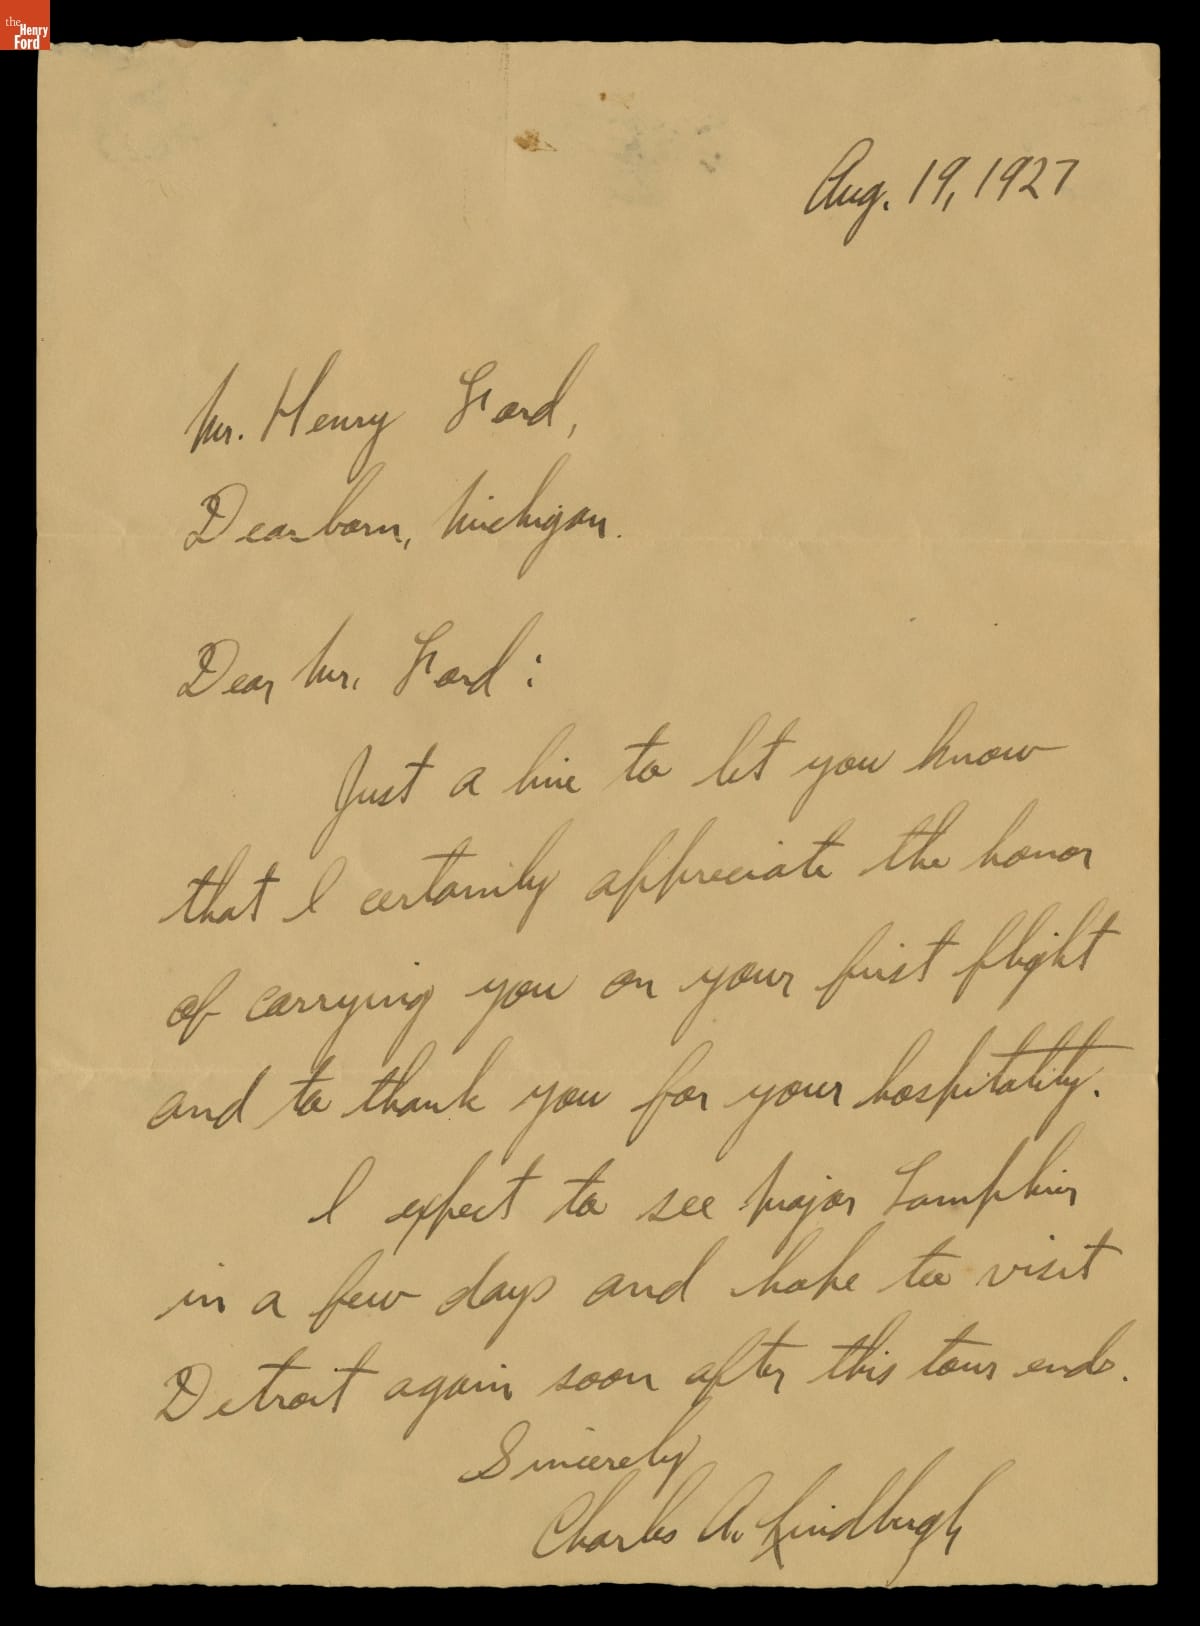 the
Henry
Ford
Aug. 19, 1927
Mr. Henry Ford,
Dearborn, Michigan.
Dear Mr. Ford:
Just a line to let you know
that I certainly appreciate the honor
of carrying you on your first flight
and to thank you for your hospitality.
I expect to see Major Lamphier
in a few days and hope to visit
Detroit again soon after this tour ends.
Sincerely
Charles A. Lindbergh